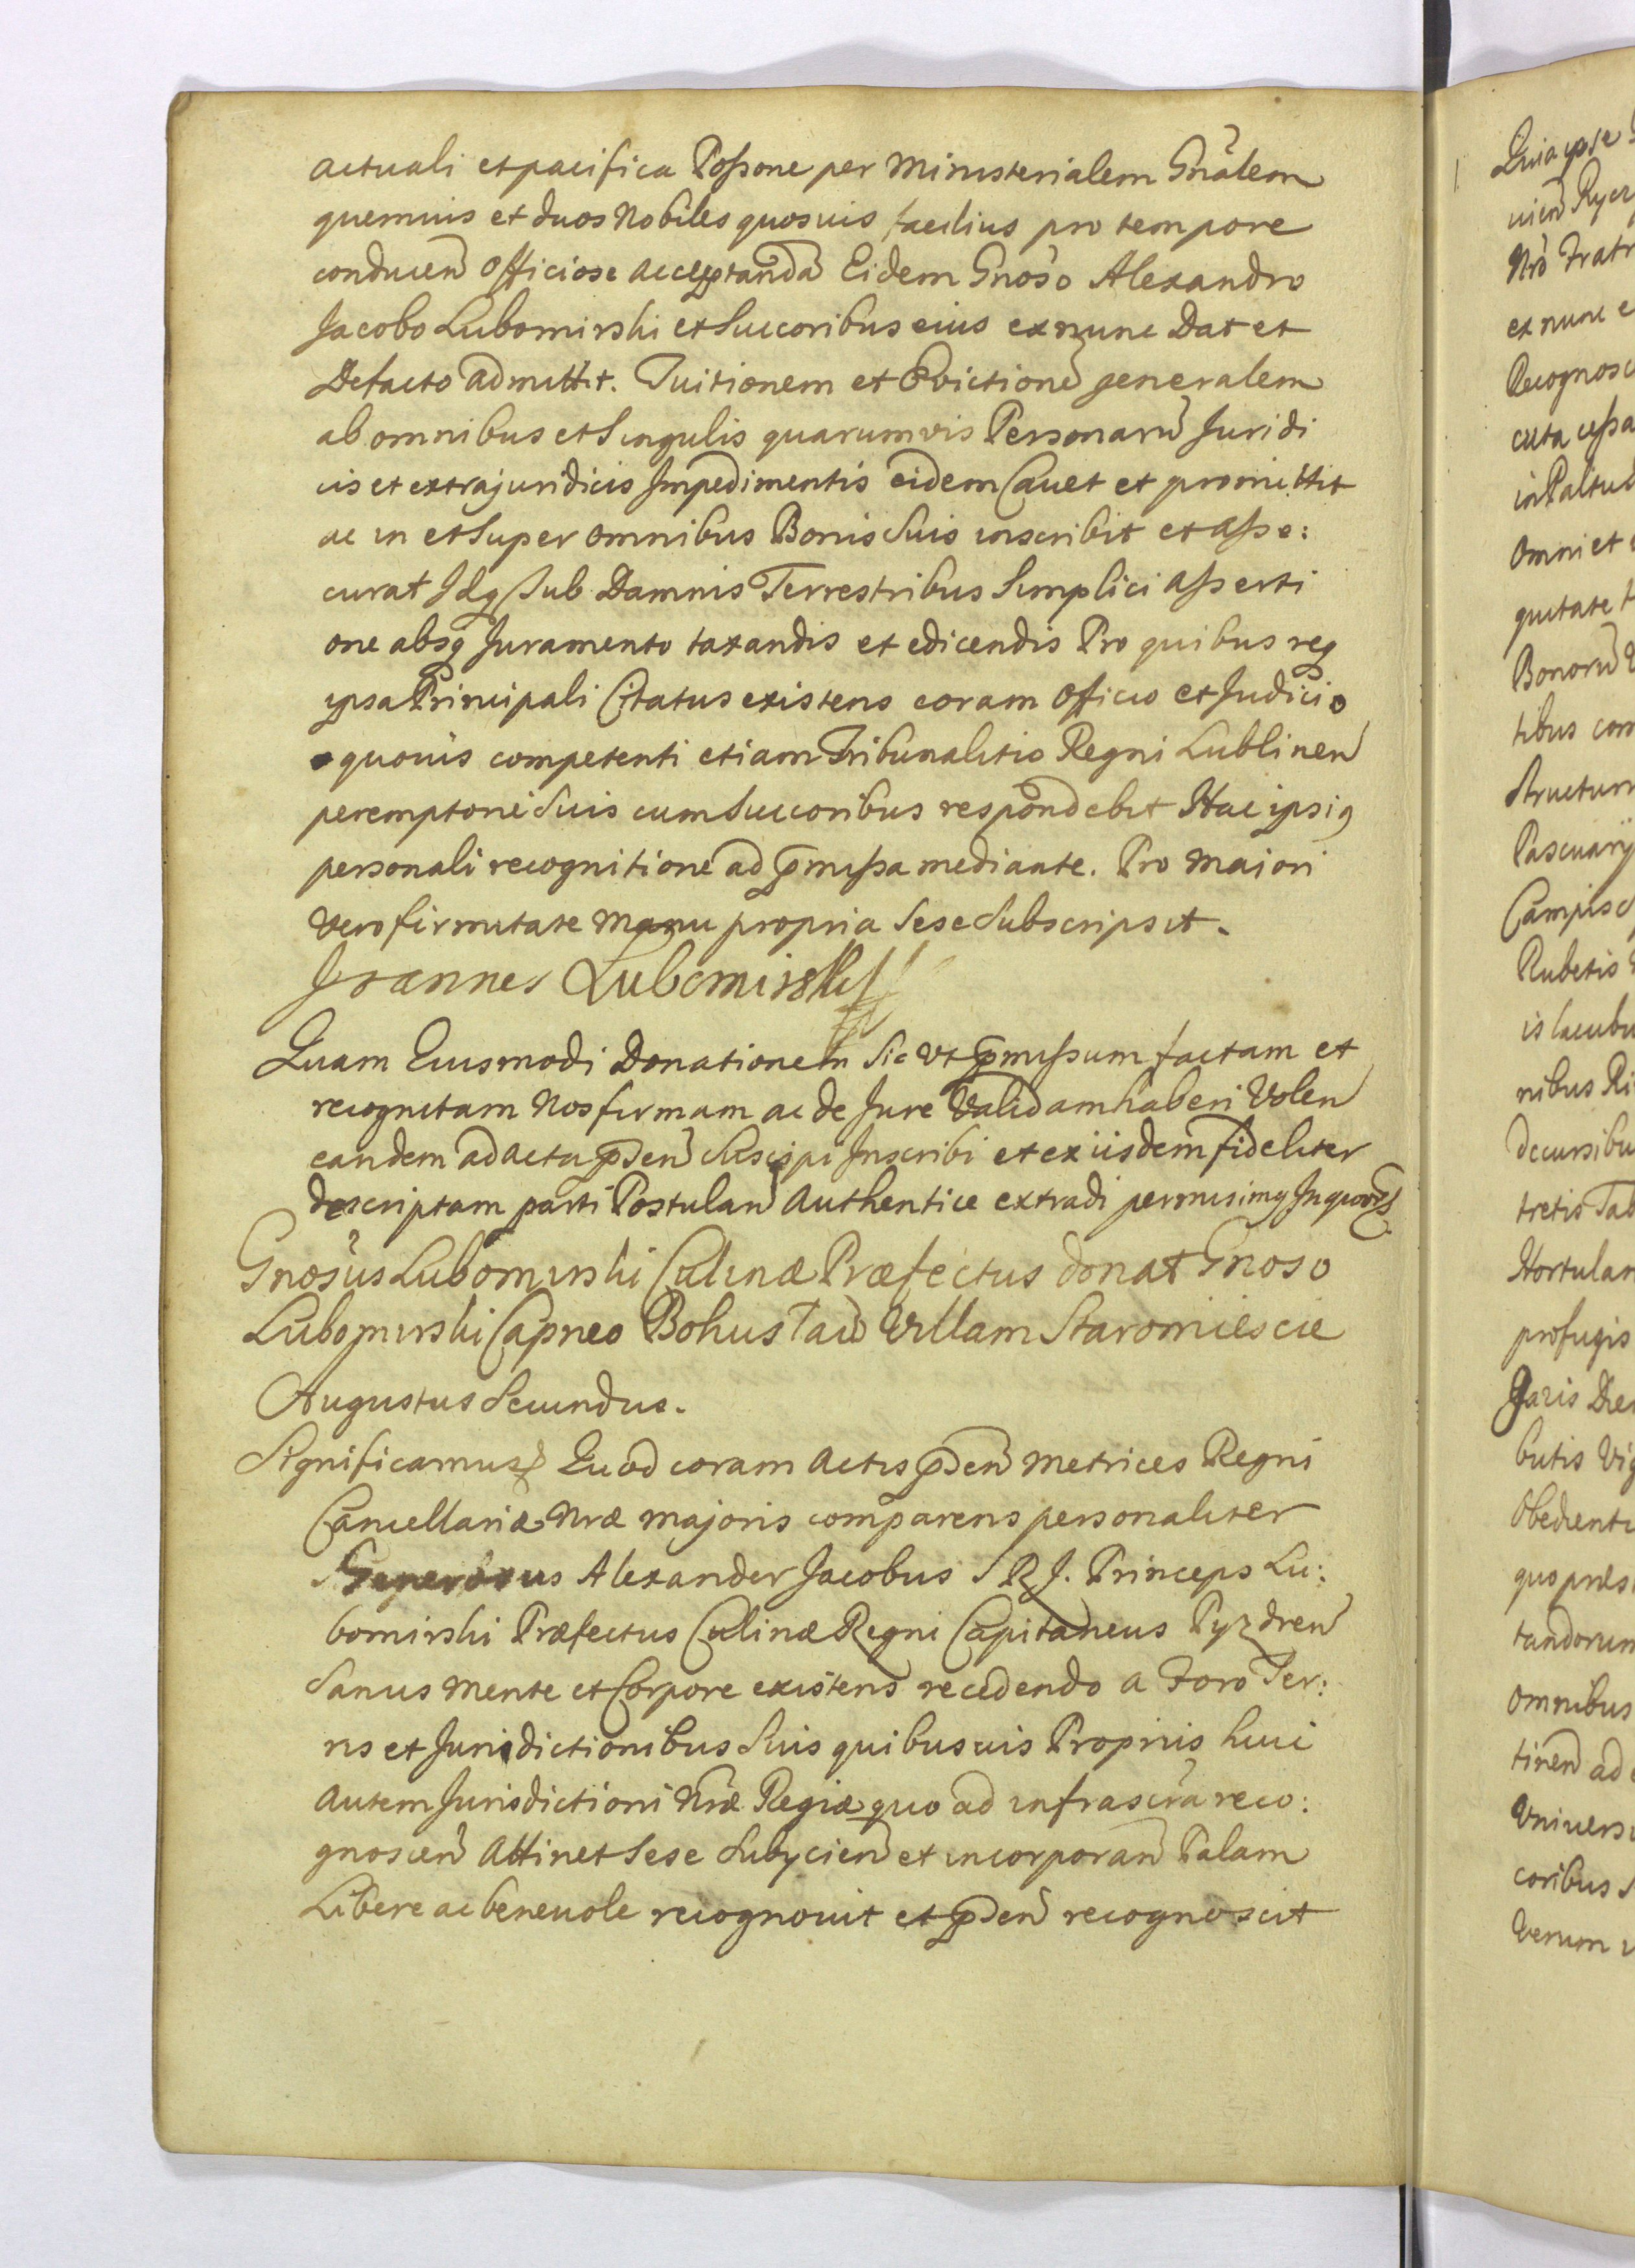 actuali et pacifica Possone per Ministerialem Gnãlem
quemuis et duos Nobiles quosuis facilius pro tempore
conducen̄ Officiose acceptanda Eidem Gnoso Alexandro
Jacobo Lubomirski et Succoribus eius ex nunc Dat et
Defacto admittit. Tuitionem et Evictionē generalem
ab omnibus et Singulis quarumvis Personarū Juridi
cis et extrajuridicis Impedimentis eidem Cauet et promittit
ac in et Super omnibus Bonis Suis inscribit et asse:
curat Idq̃ Sub Damnis Terrestribus Simplici asserti
one absq̃ Juramento taxandis et edicendis Pro quibus req̃
ipsa Principali Citatus existens coram Officio et Judicio
quouis competenti etiam Tribunalitio Regni Lublinen̄
peremptorie Suis cum Succoribus respondebit Hac ipsiq
personali recognitione ad p̄missa mediante. Pro Maiori
Vero firmitate Manu propria Sese Subscripsit.
Joannes Lubomirski
Quam Eiusmodi Donationem Sic Vt p̄missum factam et
recognitam Nos firmam ac de Jure Validam haberi Volen̄
eandem ad acta p̄sen̄ Suscipi Inscribi et ex iisdem fideliter
descriptam parti Postulan̄ Authentice extradi permisimq Inquor
Gnosus Lubomirski Culinæ Præfectus donat Gnoso
Lubomirski Capneo Bohustaw Villam Staromiescie
Augustus Secundus.
Significamus Quod coram Actis p̄sen̄ Metrices Regni
Cancellariæ Nræ majoris comparens personaliter
Generosus Alexander Jacobus S R J. Princeps Lu:
bomirski Præfectus Culinæ Regni Capitaneus Pyzdren̄
Sanus Mente et Corpore existens recedendo a Foro Ter:
ris et Jurisdictionibus Suis quibusuis Propriis huic
Autem Jurisdictioni Nræ Regiæ quo ad infrascrã reco:
gnoscen̄ Attinet Sese Subijcien̄ et incorporan̄ Palam
Libere ac beneuole recognouit et p̄sen̄ recognoscit
Quia ipse
Nrō Fratr
ex nunc e
Recognosc
Omni et
Bonorū
tibus com
Structur
Campis
Rubetis
nibus Ri
decursibu
Hortulan
profugis
butis Vi
Obedienti
tandorum
Omnibus
tinen̄ ad
Univers
coribus
Verum